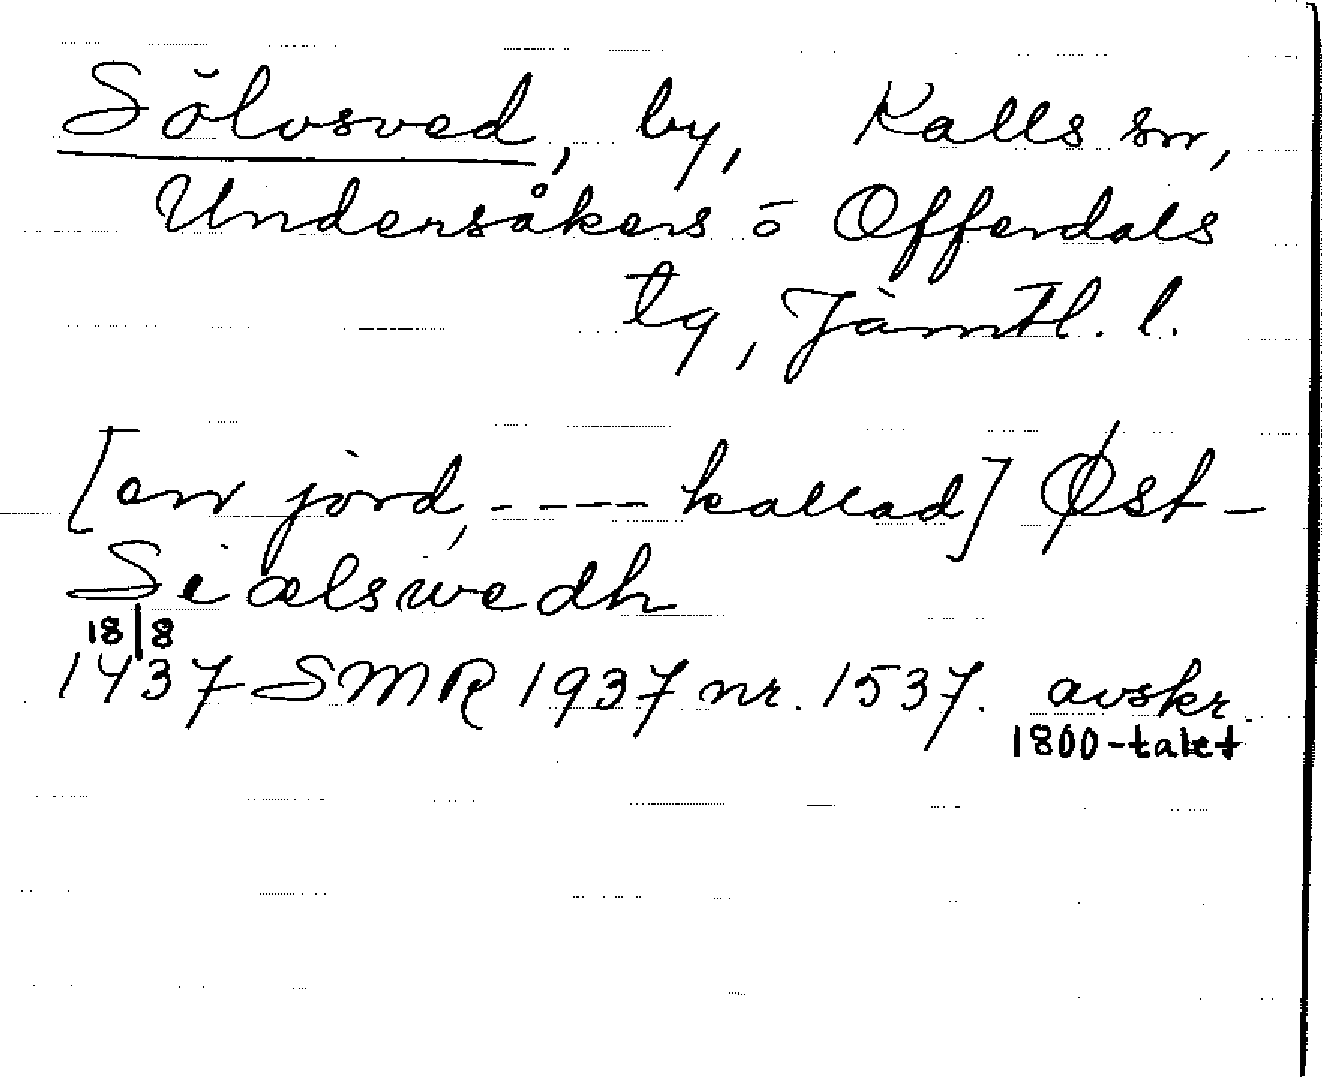 Sölvsved, by, Kalls sn,
Undersåkers o Offerdals
tg, Jämtl. l.
[en jord, ---- kallad] Øst-
Siælswedh
18/8
1437 SMR 1937 nr. 1537. avskr.
1800-talet